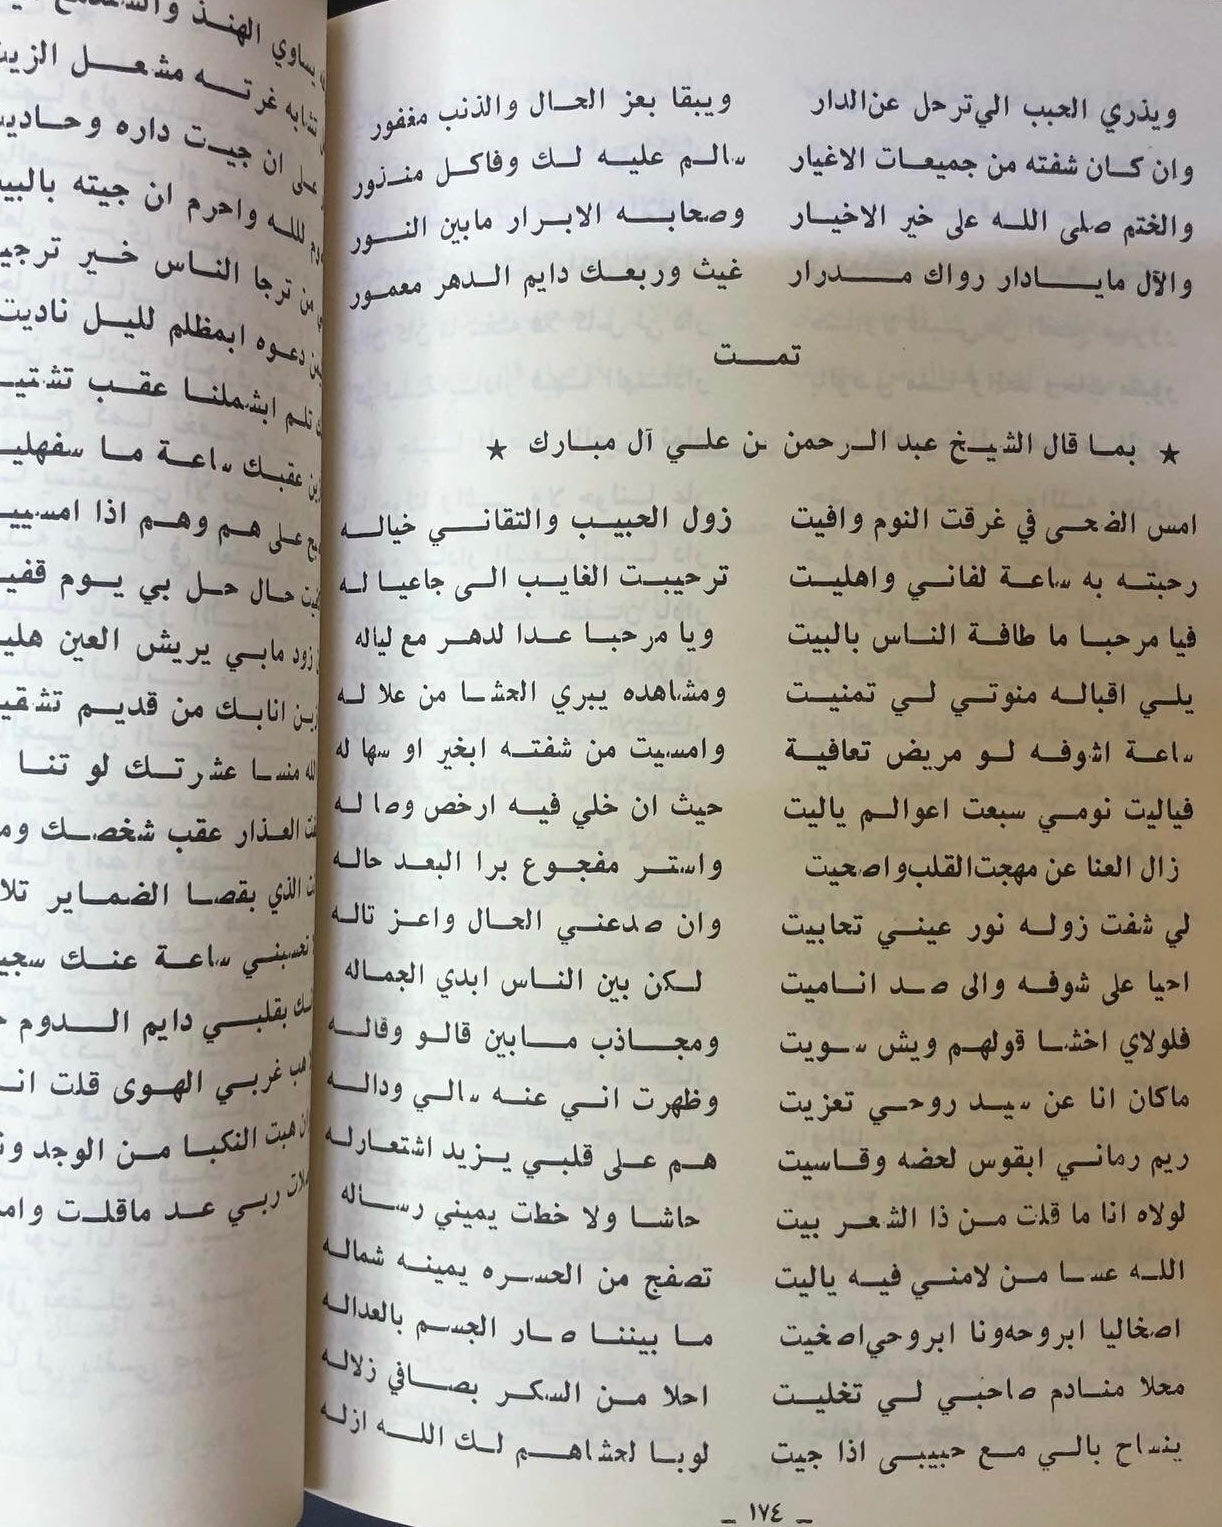 ويذري الحبب الي ترحل عن الدار ويبقا بعز الحال والذنب مغفور
وان كان شفته من جميعات الاغيار سالم عليه لك وفاكل منذور
والختم صلى الله على خير الاخيار وصحابه الابرار مابين النور
والآل مايادار رواك مدرار غيث وربعك دايم الدهر معمور
تمت
★ بما قال الشيخ عبد الرحمن بن علي آل مبارك ★
امس الضحى في غرقت النوم وافيت زول الحبيب والتقاني خياله
رحبته به ساعة لفاني واهليت ترحيبت الغايب الى جاعيا له
فيا مرحبا ما طافة الناس بالبيت ويا مرحبا عدا لدهر مع لياله
يلي اقباله منوتي لي تمنيت ومشاهده يبري الحشا من علا له
ساعة اشوفه لو مريض تعافية وامسيت من شفته ابخير او سها له
فياليت نومي سبعت اعوالم ياليت حيث ان خلي فيه ارخص وصا له
زال العنا عن مهجت القلب واصحيت واستر مفجوع برا البعد حاله
لي شفت زوله نور عيني تحابيت وان صدعني الحال واعز تاله
احيا على شوفه والى صد اناميت لكن بين الناس ابدي الجماله
فلولاي اخشا قولهم ويش سويت ومجاذب مابين قالو وقاله
ماكان انا عن سيد روحي تعزيت وظهرت اني عنه سالي ودالـه
ريم رماني ابقوس لحضه وقاسيت هم على قلبي يزيد اشتعارله
لولاه انا ما قلت من ذا الشعر بيت حاشا ولا خطت يميني رساله
الله عسا من لامني فيه ياليت تصفج من الحسره يمينه شماله
اصخاليا ابروحه ونا ابروحي اصخيت ما بيننا صار الجسم بالعداله
محلا منادم صاحبي لي تخليت احلا من السكر بصافي زلاله
ينساح بالي مع حبيبي اذا جيت لوبا لحشاهم لك الله ازله
_ ١٧٤ _
يساوي الهنذ
تشابه غرته مشعل
ان جيت داره
لله واحرم ان جيته
من ترجا الناس خير
دعوه ابمظلم لليل ناديت
تلم ابشملنا عقب
عقبك ساعة ما
على هم وهم اذا
حال حل بي يوم
زود مابي يريش العين
انابك من قديم
منسا عشرتك لو تنا
العذار عقب شخصك
الذي بقصا الضماير
ساعة عنك
بقلبي دايم الدوم
غربي الهوى قلت
هبت النكبا من الوجد
ربي عد ماقلت